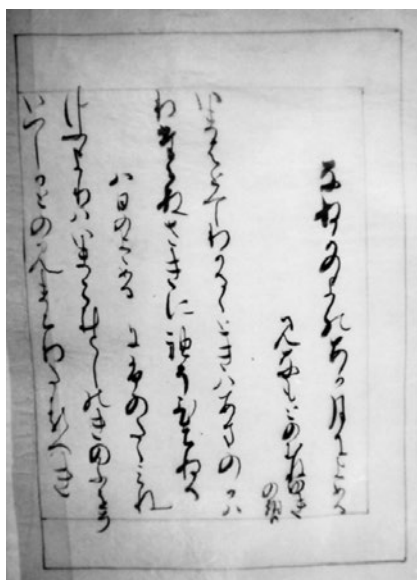 なぬかのよのあか月によめる
みなもとのむねゆき
の朝臣
いまはとてわかるゝときはあまのかは
わたらぬさきに袖そひちぬる
八日のよめる みふのたゝみね
けふよりはいまこむとしのきのふをそ
いつしかとのみまちわたるへき